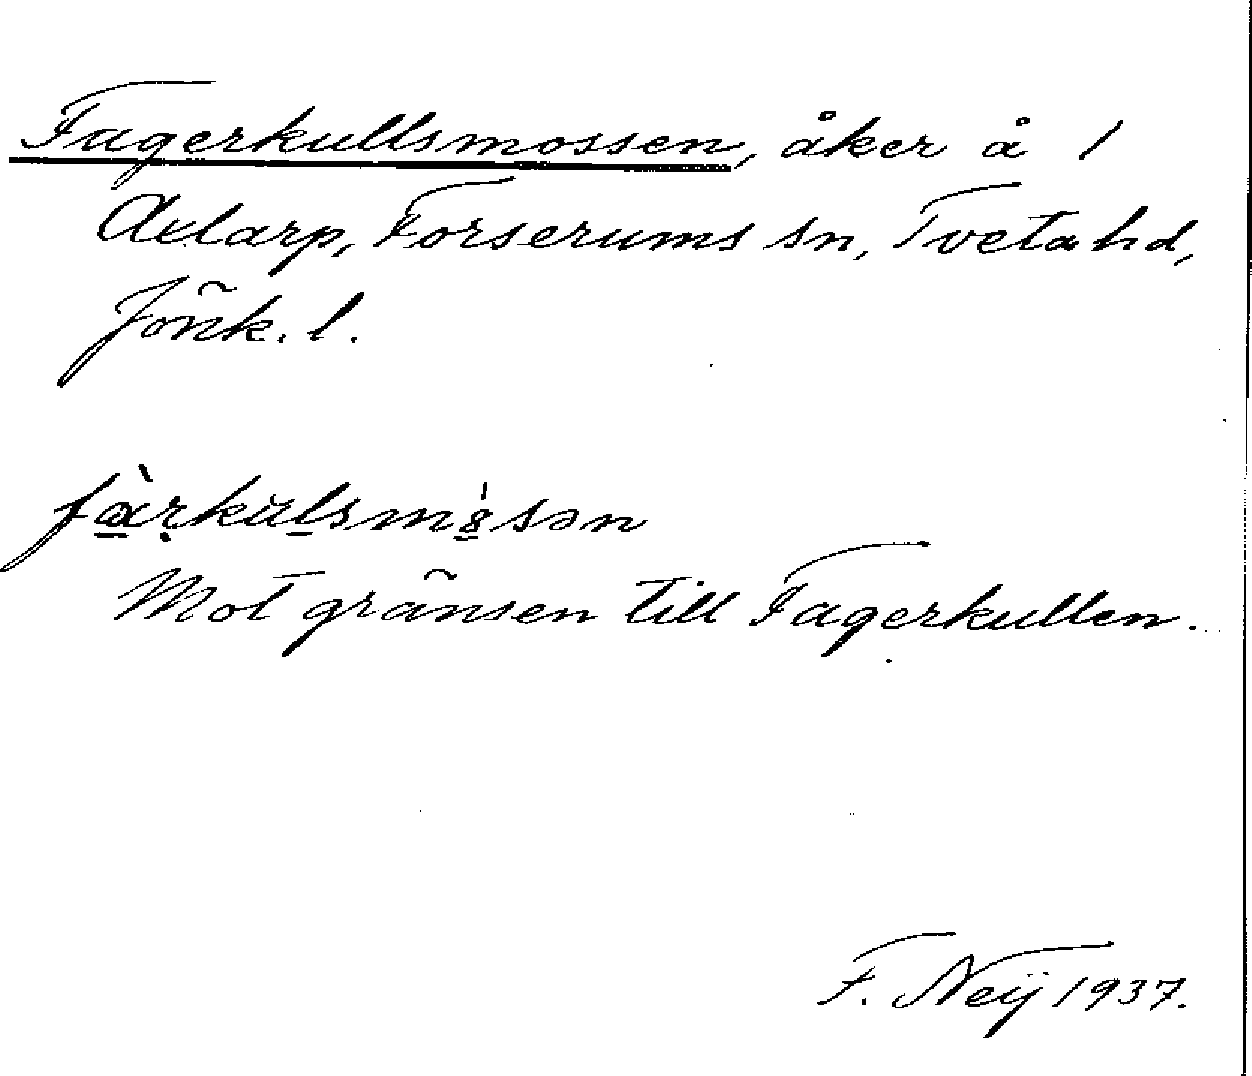 Fagerkullsmossen, åker å 1
Axlarp, Forserums sn, Tveta hd,
Jönk. l.
fàrkŭlsmꞌ8sən
Mot gränsen till Fagerkullen.
F. Neij 1937.